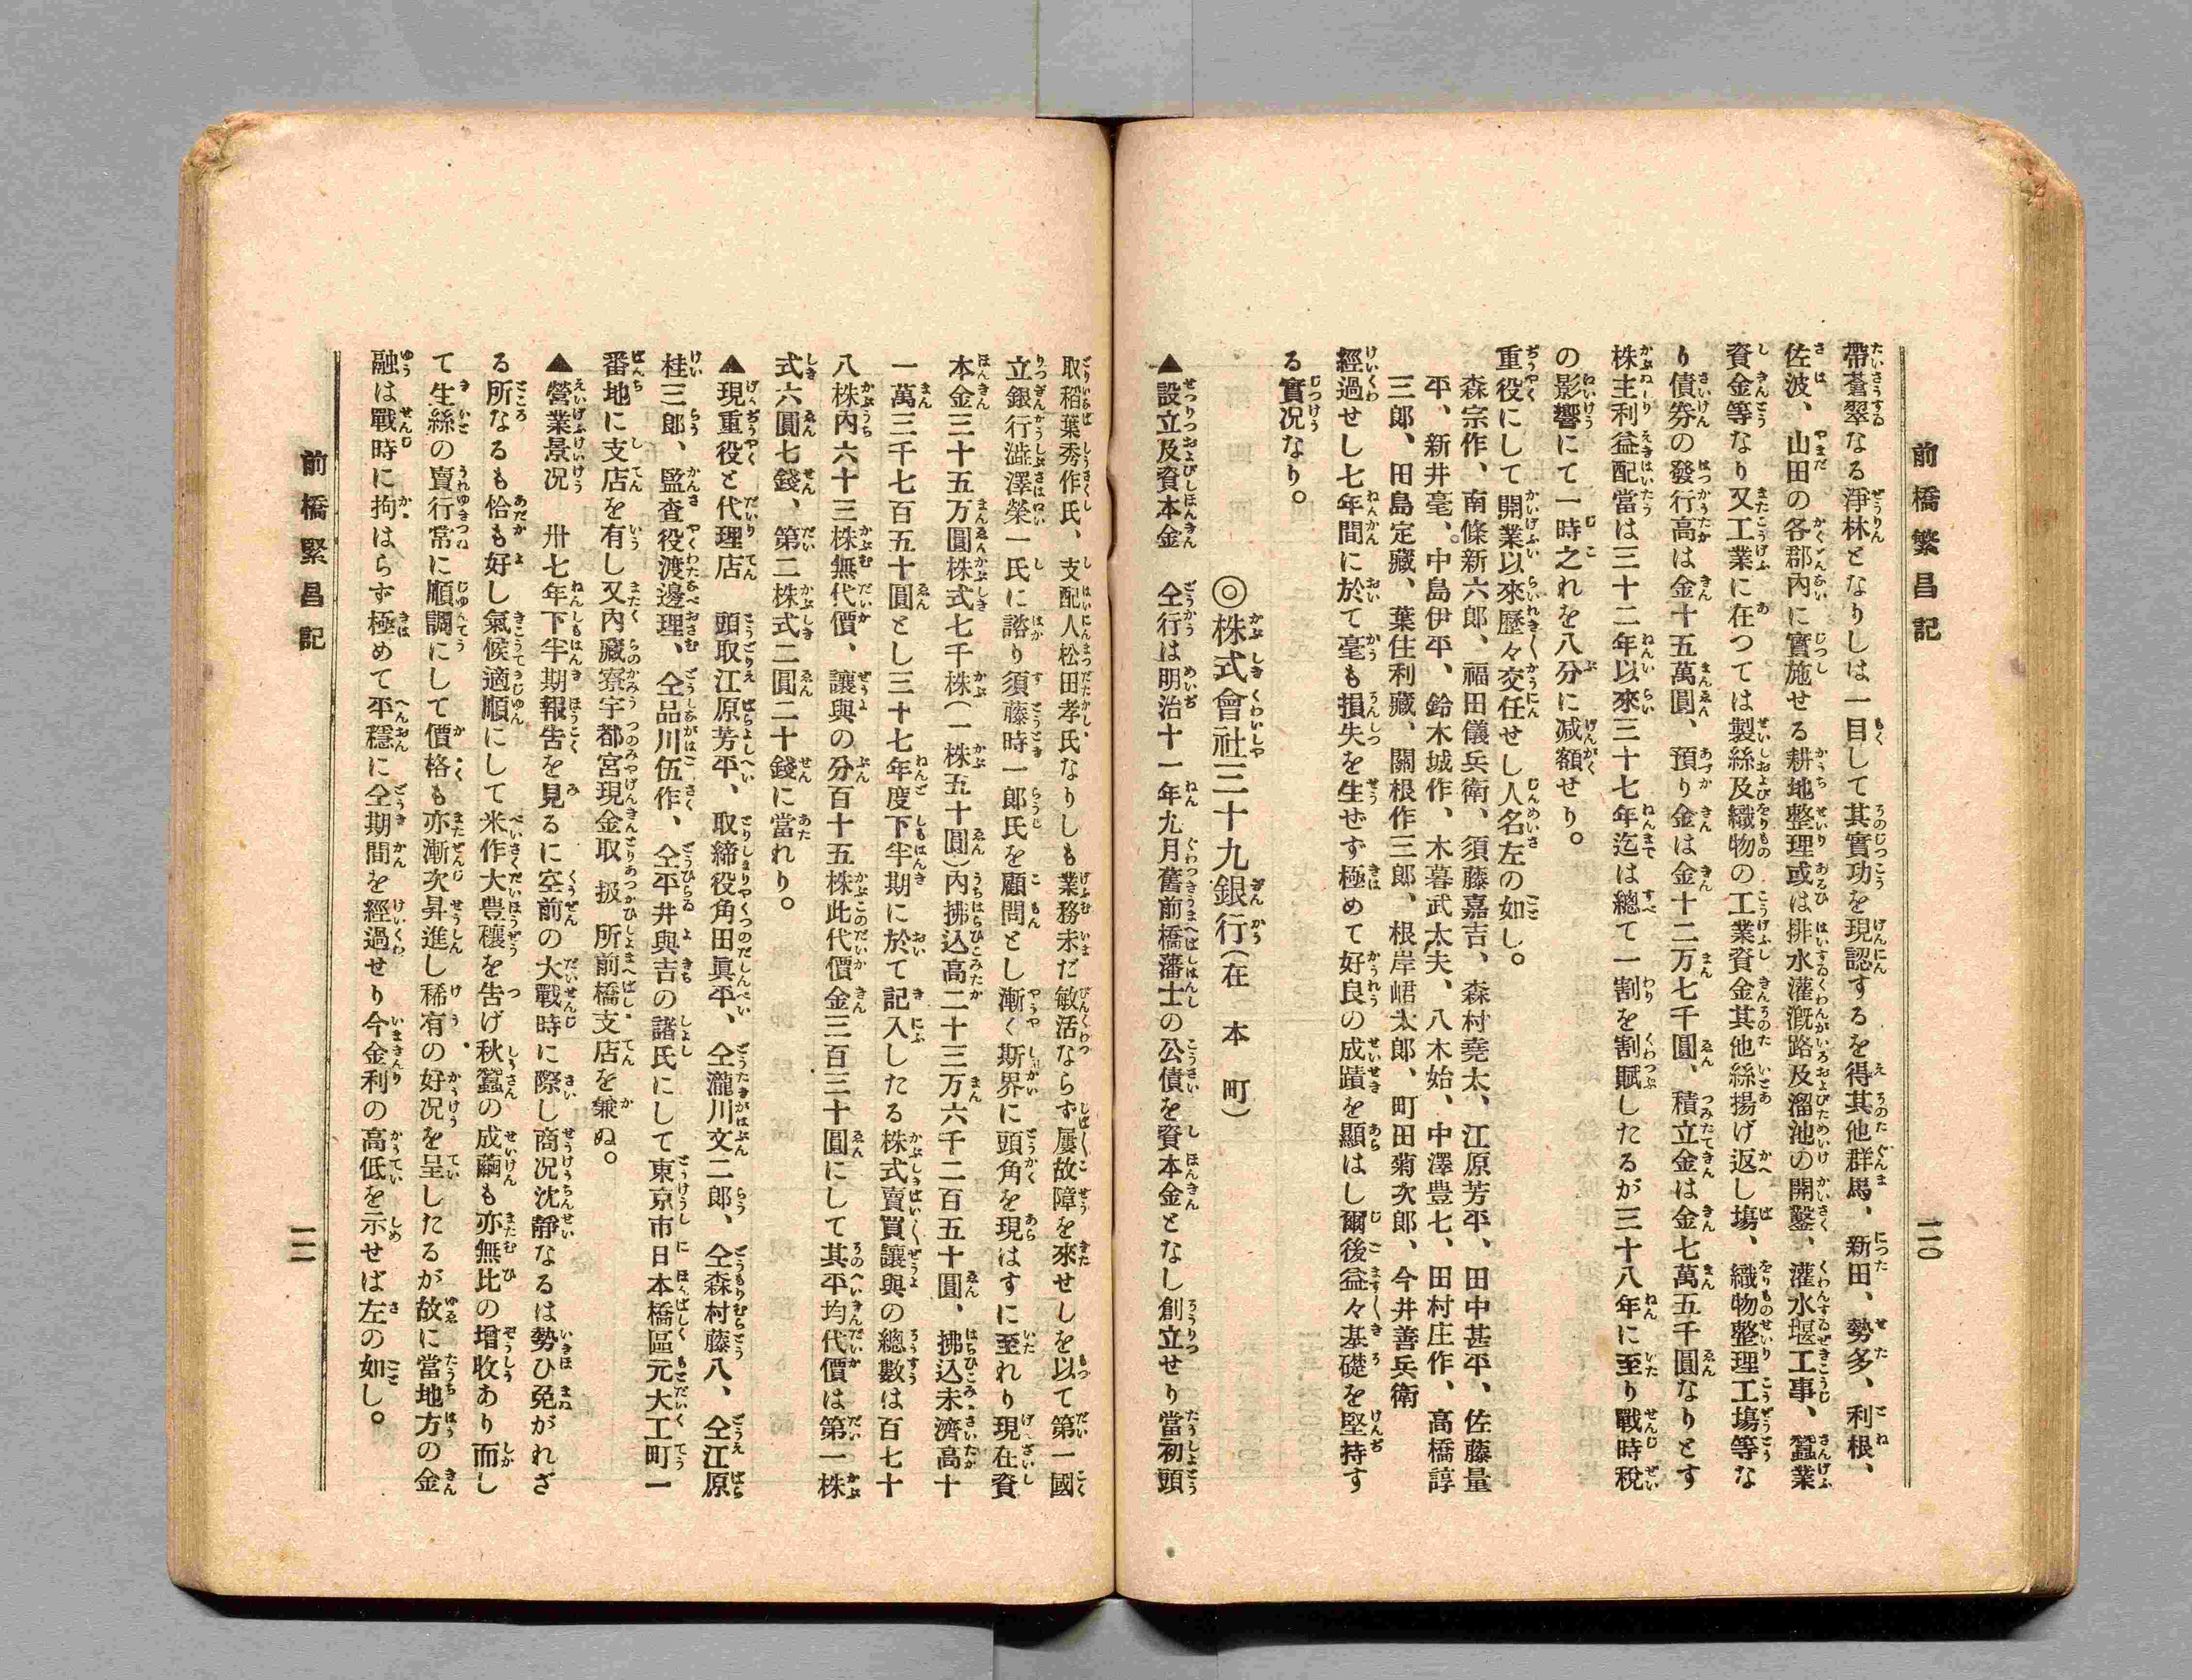 前橋繁昌記
二〇
帶蒼翠なる淨林となりしは一目して其實功を現認するを得其他群馬、新田、勢多、利根、
佐波、山田の各郡內に實施せる耕地整理或は排水灌漑路及溜池の開鑿、灌水堰工事、蠶業
資金等なり又工業に在つては製絲及織物の工業資金其他絲揚げ返し塲、織物整理工塲等な
り債劵の發行高は金十五萬圓、預り金は金十二万七千圓、積立金は金七萬五千圓なりとす
株主利益配當は三十二年以來三十七年迄は總て一割を割賦したるが三十八年に至り戰時稅
の影響にて一時之れを八分に减額せり。
重役にして開業以來歷々交任せし人名左の如し。
森宗作、南條新六郎、福田儀兵衛、須藤嘉吉、森村堯太、江原芳平、田中甚平、佐藤量
平、新井毫、中島伊平、鈴木城作、木暮武太夫、八木始、中澤豊七、田村庄作、高橋諄
三郎、田島定藏、葉住利藏、關根作三郎、根岸峮太郎、町田菊次郎、今井善兵衛
經過せし七年間に於て毫も損失を生せず極めて好良の成蹟を顯はし爾後益々基礎を堅持す
る實况なり。
◎株式會社三十九銀行（在本町）
▲設立及資本金　仝行は明治十一年九月舊前橋藩士の公債を資本金となし創立せり當初頭
取稻葉秀作氏、支配人松田孝氏なりしも業務未だ敏活ならず屢故障を來せしを以て第一國
立銀行澁澤榮一氏に諮り須藤時一郎氏を顧問とし漸く斯界に頭角を現はすに至れり現在資
本金三十五万圓株式七千株（一株五十圓）內拂込高二十三万六千二百五十圓、拂込未濟高十
一萬三千七百五十圓とし三十七年度下半期に於て記入したる株式賣買讓與の總數は百七十
八株內六十三株無代價、讓與の分百十五株此代價金三百三十圓にして其平均代價は第一株
式六圓七錢、第二株式二圓二十錢に當れり。
▲現重役と代理店　頭取江原芳平、取締役角田眞平、仝瀧川文二郎、仝森村藤八、仝江原
桂三郎、監査役渡邊理、仝品川伍作、仝平井與吉の諸氏にして東京市日本橋區元大工町一
番地に支店を有し又內藏寮宇都宮現金取扱所前橋支店を兼ぬ。
▲營業景况　卅七年下半期報告を見るに空前の大戰時に際し商况沈靜なるは勢ひ免がれざ
る所なるも恰も好し氣候適順にして米作大豊穰を告げ秋蠶の成繭も亦無比の增收あり而し
て生絲の賣行常に順調にして價格も亦漸次昇進し稀有の好况を呈したるが故に當地方の金
融は戰時に拘はらず極めて平穩に仝期間を經過せり今金利の高低を示せば左の如し。
前橋繁昌記
二一